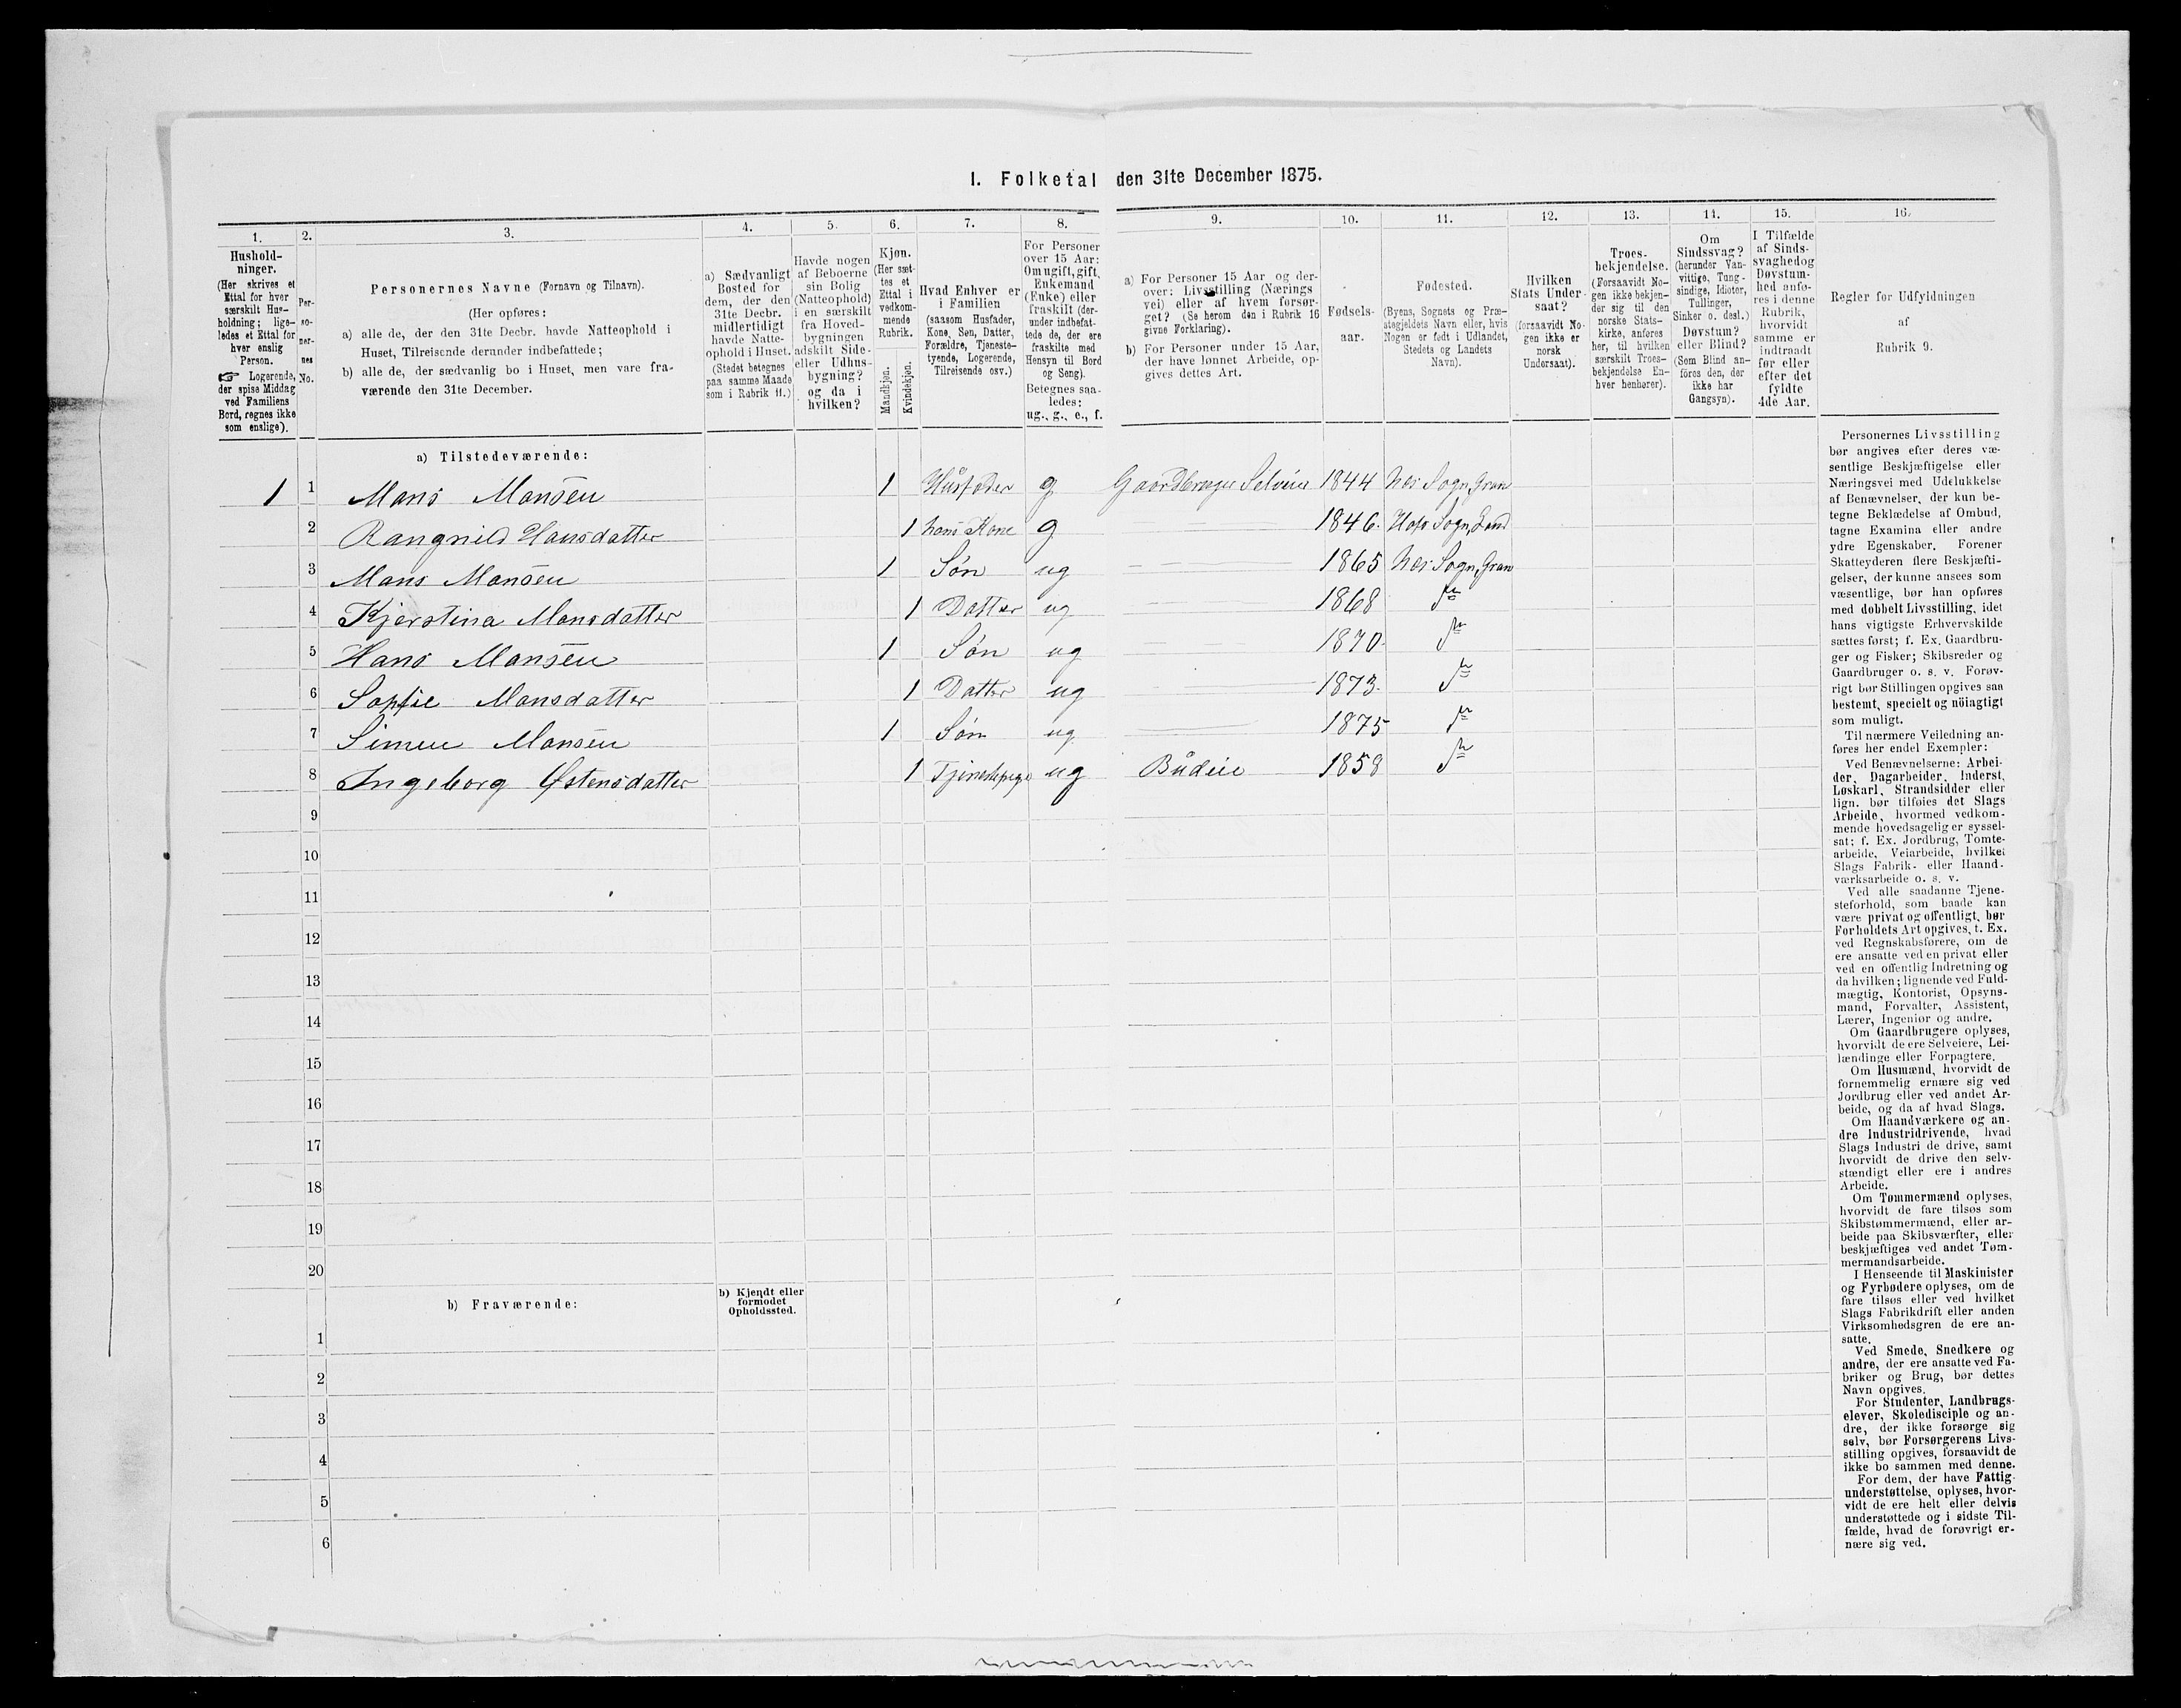 I. Folketal den 31te December 1875.
1.
2.
3.
4.
5.
6.
7.
8.
9.
10.
11.
12.
13.
14.
15.
16.
Hushold-
ninger.
(Her skrives et
Ettal for hver
særskilt Hus-
holdning; lige-
ledes et Ettal for
hver enslig
Person.
☞ Logerende,
der spise Middag
ved Familiens
Bord, regnes ikke
som enslige).
Per-
so-
ner-
nes
No.
Personernes Navne (Fornavn og Tilnavn).
(Her opføres:
a) alle de, der den 31te Decbr. havde Natteophold i
Huset, Tilreisende derunder indbefattede;
b) alle de, der sædvanlig bo i Huset, men vare fra-
værende den 31te December.
a) Sædvanligt
Bosted for
dem, der den
31te Decbr.
midlertidigt
havde Natte-
ophold i Huset.
(Stedet betegnes
paa samme Maade
som i Rubrik 11.)
Havde nogen
af Beboerne
sin Bolig
(Natteophold)
i en særskilt
fra Hoved-
bygningen
adskilt Side-
eller Udhus-
bygning?
og da i
hvilken?
Kjøn.
(Her sæt-
tes et
Ettal i
vedkom-
mende
Rubrik.
Mandkjøn.
Kvindekjøn.
Hvad Enhver er
i Familien
(saasom Husfader,
Kone, Søn, Datter,
Forældre, Tjeneste-
tyende, Logerende,
Tilreisende osv.)
For Personer
over 15 Aar:
Om ugift, gift,
Enkemand
(Enke) eller
fraskilt (der-
under indbefat-
tede de, der ere
fraskilte med
Hensyn til Bord
og Seng).
Betegnes saa-
ledes:
ug., g., e., f.
a) For Personer 15 Aar og der-
over: Livsstilling (Nærings
vei) eller af hvem forsør-
get? (Se herom den i Rubrik 16
givne Forklaring).
b) For Personer under 15 Aar,
der have lønnet Arbeide, op-
gives dettes Art.
Fødsels-
aar.
Fødested.
(Byens, Sognets og Præ-
stegjeldets Navn eller, hvis
Nogen er født i Udlandet,
Stedets og Landets
Navn).
Hvilken
Stats Under-
saat?
(forsaavidt No-
gen ikke er
norsk
Undersaat).
Troes-
bekjendelse.
(Forsaavidt No-
gen ikke bekjen-
der sig til den
norske Stats-
kirke, anføres
her, til hvilken
særskilt Troes-
bekjendelse En-
hver henhører).
Om
Sindssvag?
(herunder Van-
vittige, Tung-
sindige, Idioter,
Tullinger,
Sinker o. desl.)
Døvstum?
eller Blind?
(Som Blind an-
føres den, der
ikke har
Gangsyn).
I Tilfælde
af Sinds-
svaghedog
Døvstum-
hed anfø-
res i denne
Rubrik,
hvorvidt
samme er
indtraadt
før eller
efter det
fyldte
4de Aar.
Regler for Udfyldningen
af
Rubrik 9.
a) Tilstedeværende:
1 1 Mans Mansen 1 Husfader g Gaardbruger Selveier 1844 Nes Sogn, Gran
2 Rangnild Hansdatter 1 hans Kone g 1846. Hofs Sogn, Land
3 Mans Mansen 1 Søn ug 1865 Nes Sogn, Gran
4 Kjerstina Mansdatter 1 Datter ug 1868
5 Hans Mansen 1 Søn ug 1870
6 Sopfie Mansdatter 1 Datter ug 1873.
7 Simen Mansen 1 Søn ug 1875
8 Ingeborg Østensdatter 1 ug Budeie 1858
9
10
11
12
13
14
15
16
17
18
19
20
b) Fraværende:
b) Kjendt eller
formodet
Opholdssted.
1
2
3
4
5
6
Personernes Livsstilling
bør angives efter deres væ-
sentlige Beskjæftigelse eller
Næringsvei med Udelukkelse
af Benævnelser, der kun be-
tegne Beklædelse af Ombud,
tagne Examina eller andre
ydre Egenskaber. Forener
Skatteyderen flere Beskjæfti-
gelser, der kunne ansees som
væsentlige, bør han opføres
med dobbelt Livsstilling, idet
hans vigtigste Erhvervskilde
sættes først; f. Ex. Gaardbru-
ger og Fisker; Skibsreder og
Gaardbruger o. s. v. Forøv-
rigt bør Stillingen opgives saa
bestemt, specielt og nøiagtigt
som muligt.
Til nærmere Veiledning an-
føres her endel Exempler:
Ved Benævnelserne: Arbei-
der, Dagarbeider, Inderst,
Løskarl, Strandsidder eller
lign. bør tilføies det Slags
Arbeide, hvormed vedkom-
mende hovedsagelig er syssel-
sat; f. Ex. Jordbrug, Tomte-
arbeide, Veiarbeide, hvilket
Slags Fabrik- eller Haand-
værksarbeide o. s. v.
Ved alle saadanne Tjene-
steforhold, som baade kan
være privat og offentligt, bør
Forholdets Art opgives, t. Ex.
ved Regnskabsførere, om de
ere ansatte ved en privat eller
ved en offentlig Indretning og
da hvilken; lignende ved Fuld-
mægtig, Kontorist, Opsyns-
mand, Forvalter, Assistent,
Lærer, Ingeniør og andre.
Om Gaardbrugere oplyses,
hvorvidt de ere Selveiere, Lei-
lændinge eller Forpagtere.
Om Husmænd, hvorvidt de
fornemmelig ernære sig ved
Jordbrug eller ved andet Ar-
beide, og da af hvad Slags.
Om Haandværkere og an-
dre Industridrivende, hvad
Slags Industri de drive, samt
hvorvidt de drive den selv-
stændigt eller ere i andres
Arbeide.
Om Tømmermænd oplyses,
hvorvidt de fare tilsøs som
Skibstømmermænd, eller ar-
beide paa Skibsværfter, eller
beskjæftiges ved andet Tøm-
mermandsarbeide.
I Henseende til Maskinister
og Fyrbødere oplyses, om de
fare tilsøs eller ved hvilket
Slags Fabrikdrift eller anden
Virksomhedsgren de ere an-
satte.
Ved Smede, Snedkere og
andre, der ere ansatte ved Fa-
briker og Brug, bør dettes
Navn opgives.
For Studenter, Landbrugs-
elever, Skoledisciple og an-
dre, der ikke forsørge sig
selv, bør Forsørgerens Livs-
stilling opgives, forsaavidt de
ikke bo sammen med denne.
For dem, der have Fattig-
understøttelse, oplyses, hvor-
vidt de ere helt eller delvis
understøttede og i sidste Til-
fælde, hvad de forøvrigt er-
nære sig ved.